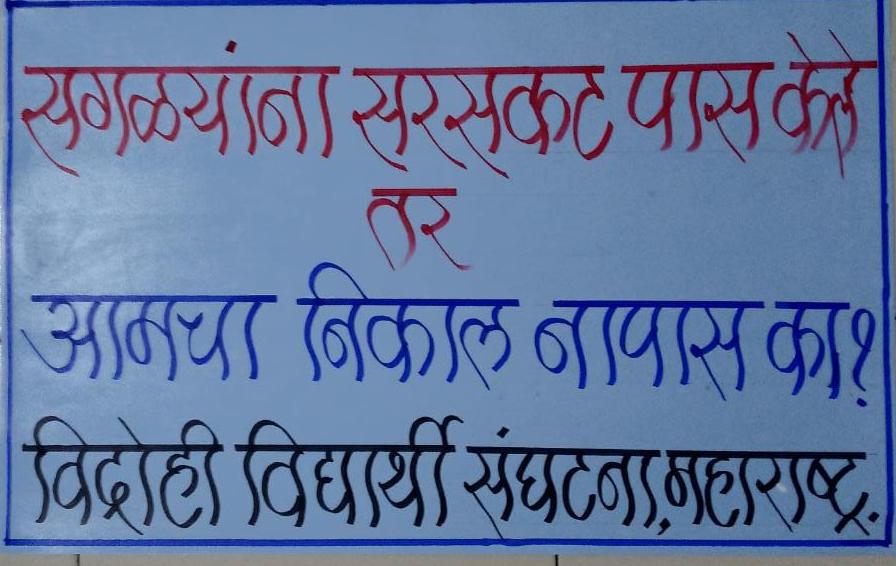 सगळयांना सरसकट पास केले
तर
आमचा निकाल नापास का?
विद्रोही विद्यार्थी संघटना,महाराष्ट्र.